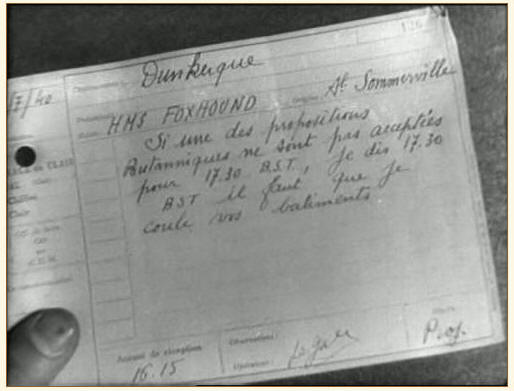 126
Dunkerque
/7/40
HMS FOXHOUND
Al Sommerville
Si une des propositions
Britanniques ne sont pas acceptées
pour 17.30 B.S.T. je dis 17.30
B.S.T il faut que je
coule vos batiments
Instant de réception
16.15
Observations :
Opérateur :